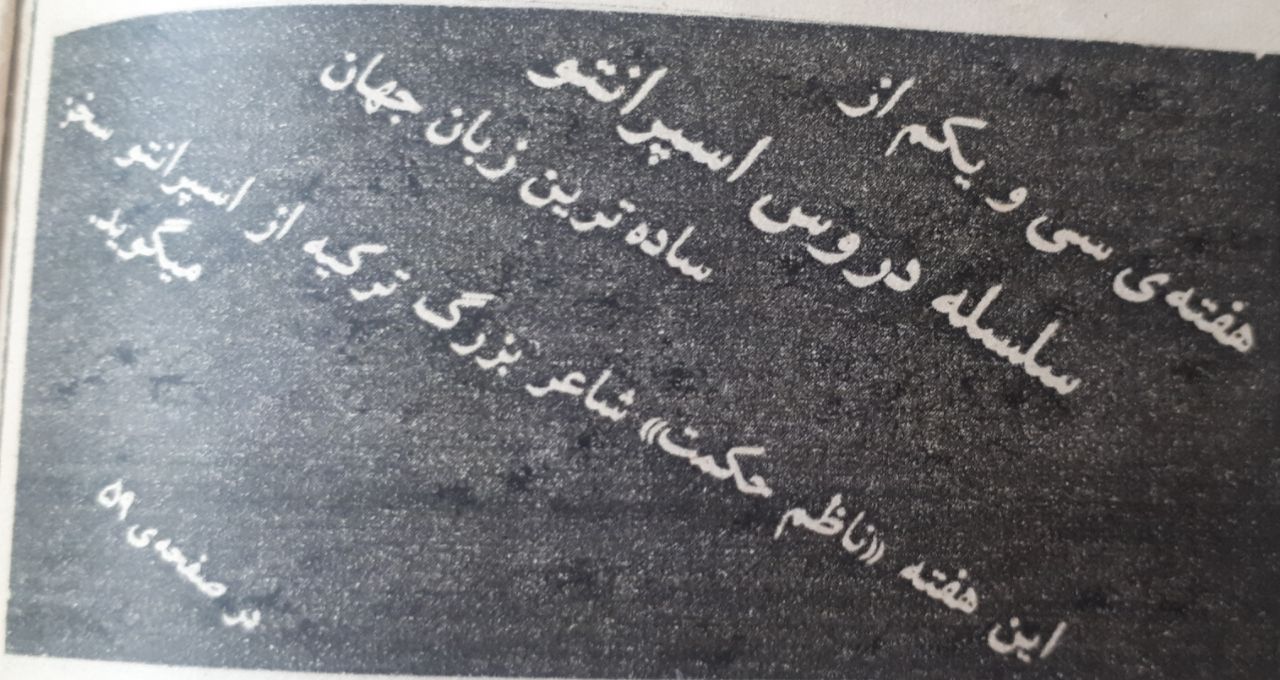 هفته‌ی سی و یکم از
سلسله دروس اسپرانتو
ساده ترین زبان جهان
این هفته «ناظم حکمت» شاعر بزرگ ترکیه از اسپرانتو سخن
میگوید
در صفحه‌ی ۵۹